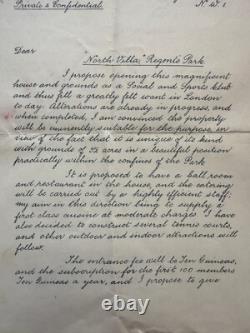 Private & Confidential.
N.W.1.
Dear
North Villa, Regents Park
I propose opening this magnificent
house and grounds as a Social and Sports club
and thus fill a greatly felt want in London
to day. Alterations are already in progress and
when completed, I am convinced the property
will be eminently suitable for the purpose in
view of the fact that it is unique of its kind
with grounds of acres in a beautiful position
practically within the confines of the Park
It is proposed to have a ball room
and restaurant in the house and the catering
will be carried out by a highly efficient staff;
my aim in this direction being to supply a
first class cuisine at moderate charges. I have
also decided to construct several tennis courts,
and other outdoor and indoor attractions will
follow.
The entrance fee will be Ten Guineas,
and the subscription for the first 100 members
Ten Guineas a year, and I propose to give